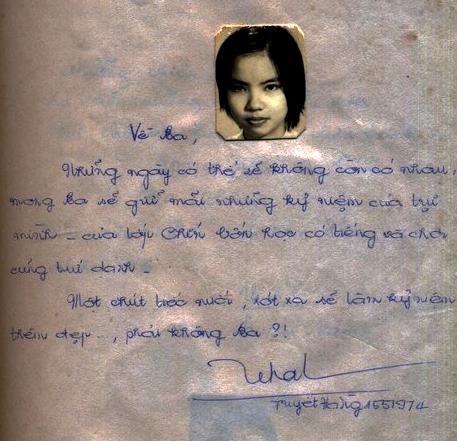 Về Ba,
Những ngày có thể sẽ không còn có nhau,
mong Ba sẽ giữ mãi những kỷ niệm của tụi
mình - của lớp Chín bốn học có tiếng và chơi
cũng
Một chút tiếc nuối, xót xa sẽ làm kỷ niệm
thêm đẹp..., phải không Ba ?!
Tuyết Hằng 1551974